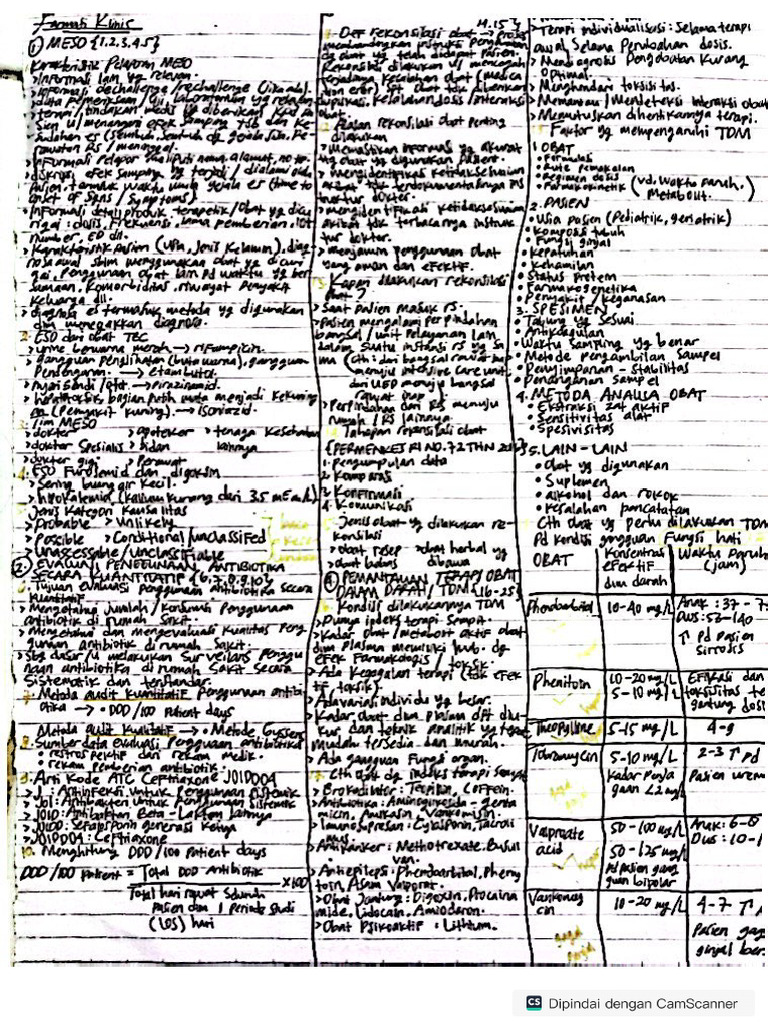 Farmasi Klinis
① MESO {1.2.3.4.5}
Karakteristik Pelaporan MESO
> Informasi lain yg relevan.
> Informasi dechallenge/rechallenge (jika ada).
> data pemeriksaan/uji laboratorium yg relevan
> terapi/tindakan medis yg diberikan kpd pa
sien u/ menangani efek samping tsb dan ke-
sudahan es (sembuh, sembuh dg gejala sisa, Pe-
rawatan RS/meninggal.
> Informasi pelapor meliputi nama, alamat, no tlp.
> diskripsi efek samping yg terjadi/dialami oleh
pasien, termsuk waktu mula gejala es (time to
onset of signs/symptoms)
> Informasi detail produk terapetik/obat yg dicu
rigai : dosis, frekuensi, lama pemberian, lot
number, ED dll.
> Karakteristik pasien (usia, jenis kelamin), diag-
nosa awal sblm menggunakan obat yg dicuri
gai, Penggunaan obat lain pd waktu yg ber
samaan, Komorbiditas, riwayat Penyakit
keluarga dll.
> diagnosa es termasuk metoda yg digunakan
dlm menegakkan diagnosis.
2. ESO dari obat TBC
> urine berwarna merah → rifampicin.
> gangguan penglihatan (buta warna), gangguan
Pendengaran. → etambutol.
> nyeri sendi/otot. → pirazinamid.
> hepatotoksik, bagian putih mata menjadi kekuning
an (Penyakit kuning). → isoniazid.
3. Tim MESO
> dokter > apoteker > tenaga Kesehatan
> dokter spesialis > bidan lainnya
> dokter gigi > Perawat
4. ESO Furosemid dan digoksin
> Sering buang air Kecil.
> hipokalemia (kalium kurang dari 3.5 mEq/L)
Jenis Kategori Kausalitas
> Probable > Unlikely
> Possible > Conditional/unclassified
> Unassessable/unclassifiable
② EVALUASI PENGGUNAAN ANTIBIOTIKA
SECARA KUANTITATIF {6,7,8,9,10}
6. Tujuan evaluasi penggunaan antibiotika secara
kuantitatif
> Mengetahui Jumlah/Konsumsi Penggunaan
antibiotik di rumah sakit.
> Mengetahui dan mengevaluasi kualitas Peng
gunaan antibiotik di rumah sakit.
> sbg dasar u/ melakukan surveilans Penggu
naan antibiotika di rumah sakit Secara
Sistematik dan terstandar.
7. Metoda audit kuantitatif Penggunaan antibi-
otika → • DDD/100 patient days
Metoda audit Kualitatif → • Metode Gyssens
8. Sumber data evaluasi Penggunaan antibiotika
• restrospektif dari rekam medik.
• rekam pemberian antibiotik.
9. Arti Kode ATC Ceftriaxone J01DD04
> J : Antiinfeksi untuk Penggunaan sistemik
> J01 : Antibakteri untuk Penggunaan sistemik
> J01D : Antibakteri Beta-Laktam lainnya
> J01DD : Sefalosporin generasi ketiga
> J01DD04 : Ceftriaxone
10. Menghitung DDD/100 patient days
DDD/100 Patient = Total DDD Antibiotik
x100
Total hari rawat seluruh
pasien dlm 1 periode studi
(LOS) hari
14.15}
1. Def rekonsiliasi obat → Proses
membandingkan instruksi Pengobatan
dg obat yg telah didapat Pasien.
Rekonsiliasi dilakukan u/ mencegah
terjadinya kesalahan obat (medica
tion error) spt obat tdk diberikan
duplikasi, Kesalahan dosis/interaksi
obat.
2. Alasan rekonsiliasi obat penting
dilakukan
> memastikan informasi yg akurat
ttg obat yg digunakan pasien.
> mengidentifikasi ketidaksesuaian
akibat tdk terdokumentasinya ins
truktur dokter.
> mengidentifikasi ketidaksesuaian
akibat tdk terbacanya instruk
tur dokter.
> menjamin penggunaan obat
yang aman dan efektif.
3. Kapan dilakukan rekonsiliasi
obat?
> Saat pasien masuk RS.
> pasien mengalami perpindahan
bangsal/unit pelayanan lain
dalam suatu instansi RS yg sa
ma (Cth : dari bangsal rawat inap
menuju intensive care unit
dari UED menuju bangsal
rawat inap)
> Perpindahan dari RS menuju
rumah/RS lainnya.
Tahapan rekonsiliasi obat
{PERMENKES RI NO.72 THN 2016}
1. Pengumpulan data
2. Komparasi
3. Konfirmasi
4. Komunikasi
Jenis obat yg dilakukan re-
konsiliasi
> obat resep > obat herbal yg
> obat bebas dibawa
④ PEMANTAUAN TERAPI OBAT
DALAM DARAH/TDM {16-25}
Kondisi dilakukannya TDM
> Punya indeks terapi sempit.
> Kadar obat/metabolit aktif obat
dlm plasma memiliki hub. dg
efek Farmakologis/toksik.
> Ada Kegagalan terapi (tdk efek
tif toksik).
> Ada variasi individu yg besar.
> Kadar obat dlm plasma dpt diu-
kur dan teknik analitik yg tepat
mudah tersedia dan murah.
> Ada gangguan Fungsi organ.
Cth obat dg indeks terapi sempit
> Bronkodilator : Teofilin, Coffein.
> Antibiotika : Aminoglikosida - genta
micin, Amikasin, Vankomisin.
> Imunosupresan : Cyklosporin, Tacroli
mus
> Antikanker : Methotrexate. Busul
van.
> Antiepilepsi : Phenobarbital, Pheny
toin, Asam Valporat.
> Obat Jantung : Digoxin, Procaina
mide, Lidocain, Amiodaron.
> Obat Psikoaktif : Lithium.
> Terapi individualisasi : Selama terapi
awal, Selama Perubahan dosis.
> Mendiagnosis Pengobatan kurang
Optimal.
> Menghindari toksisitas.
> Memantau/Mendeteksi Interaksi obat
> Memutuskan dihentikannya terapi.
Faktor yg mempengaruhi TDM
1. OBAT
• Formulasi
• Rute pemakaian
• Regimen dosis
• Farmakokinetik (Vd, Waktu Paruh,
Metabolit.
2. PASIEN
• Usia pasien (Pediatrik, geriatrik)
• Komposisi tubuh
• Fungsi ginjal
• Kepatuhan
• Kehamilan
• Status protein
• Farmakogenetika
• Penyakit/keganasan
3. SPESIMEN
• Tabung yg sesuai
• Antikoagulan
• Waktu sampling yg benar
• Metode Pengambilan Sampel
• Penyimpanan - stabilitas
• Penanganan sampel
4. METODA ANALISA OBAT
• Ekstraksi zat aktif
• Sensitivitas alat
• Spesivisitas
5. LAIN-LAIN
• Obat yg digunakan
• Suplemen
• alkohol dan rokok
• Kesalahan pencatatan
Cth obat yg perlu dilakukan TDM
Pd kondisi gangguan Fungsi hati
OBAT Konsentrasi efektif dlm darah Waktu Paruh (jam)
Phenobarbital 10-40 mg/L Anak : 37-7
Dws : 53-140
↑ Pd Pasien
sirosis
Phenitoin 10-20 mg/L Efikasi dan
5-10 mg/L toksisitas te
gantung dosi
Theopylline 5-15 mg/L 4-9
Tobramycin 5-10 mg/L 2-3 ↑ pd
Kadar Penja Pasien urem
gaan <2 mg/
Valproate acid 50-100 mg/L Anak : 6-8
50-125 mg/L Dws : 10-1
Pd pasien gang
guan bipolar
Vankomycin 10-20 mg/L 4-7 ↑
Pasien gag
ginjal ber.
CS Dipindai dengan CamScanner